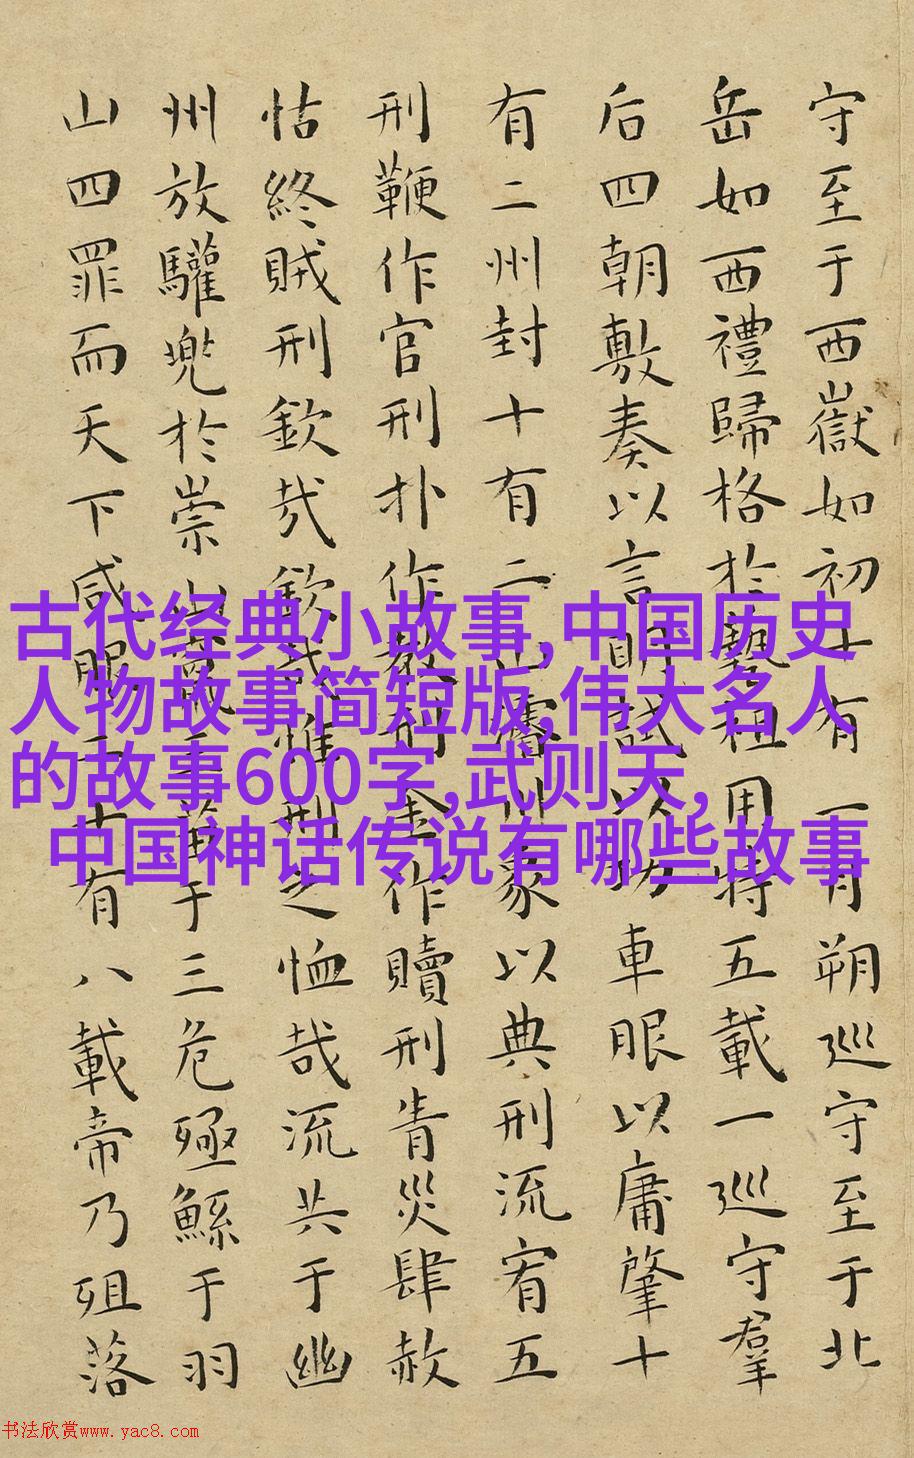 守至于西嶽如初十有一月朔巡守至于北
岳如西禮歸格於藝祖用特五載一巡守羣
后四朝敷奏以言明試以功車眼以庸肇十
有二州封十有二山濬川象以典刑流宥五
刑鞭作官刑扑作教刑金作贖刑眚災肆赦
怙終賊刑欽哉欽哉惟刑之恤哉流共于幽
州放驩兜於崇山竄三苗于三危殛鯀于羽
山四罪而天下咸服二十有八載帝乃殂落
古代经典小故事,中国历史
人物故事简短版,伟大名人
的故事600字,武则天,
中国神话传说有哪些故事
书法欣赏www.yac8.com